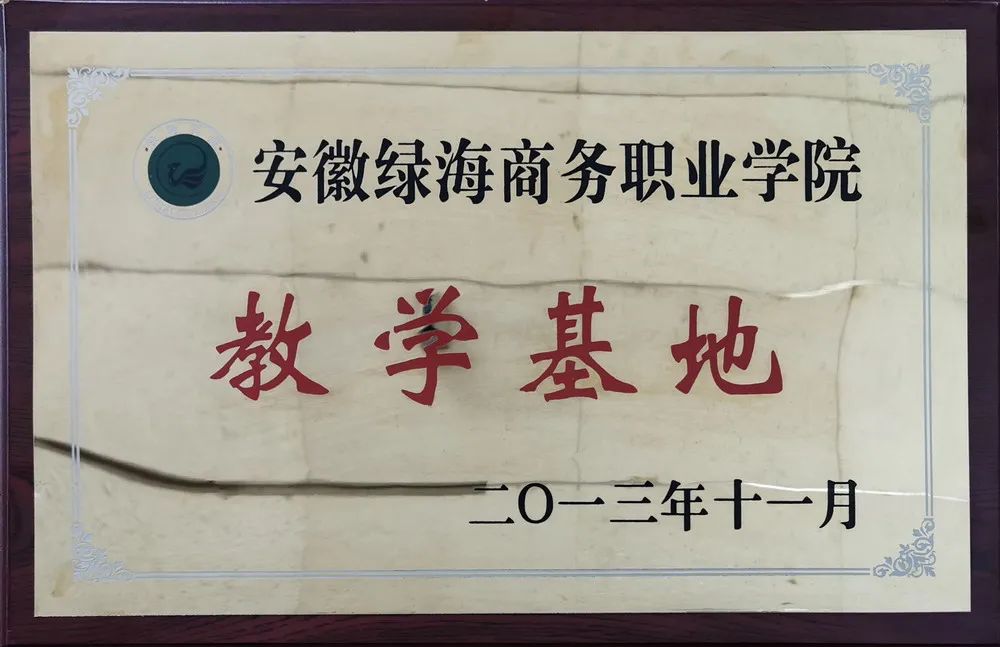 安徽绿海商务职业学院
教学基地
二〇一三年十一月